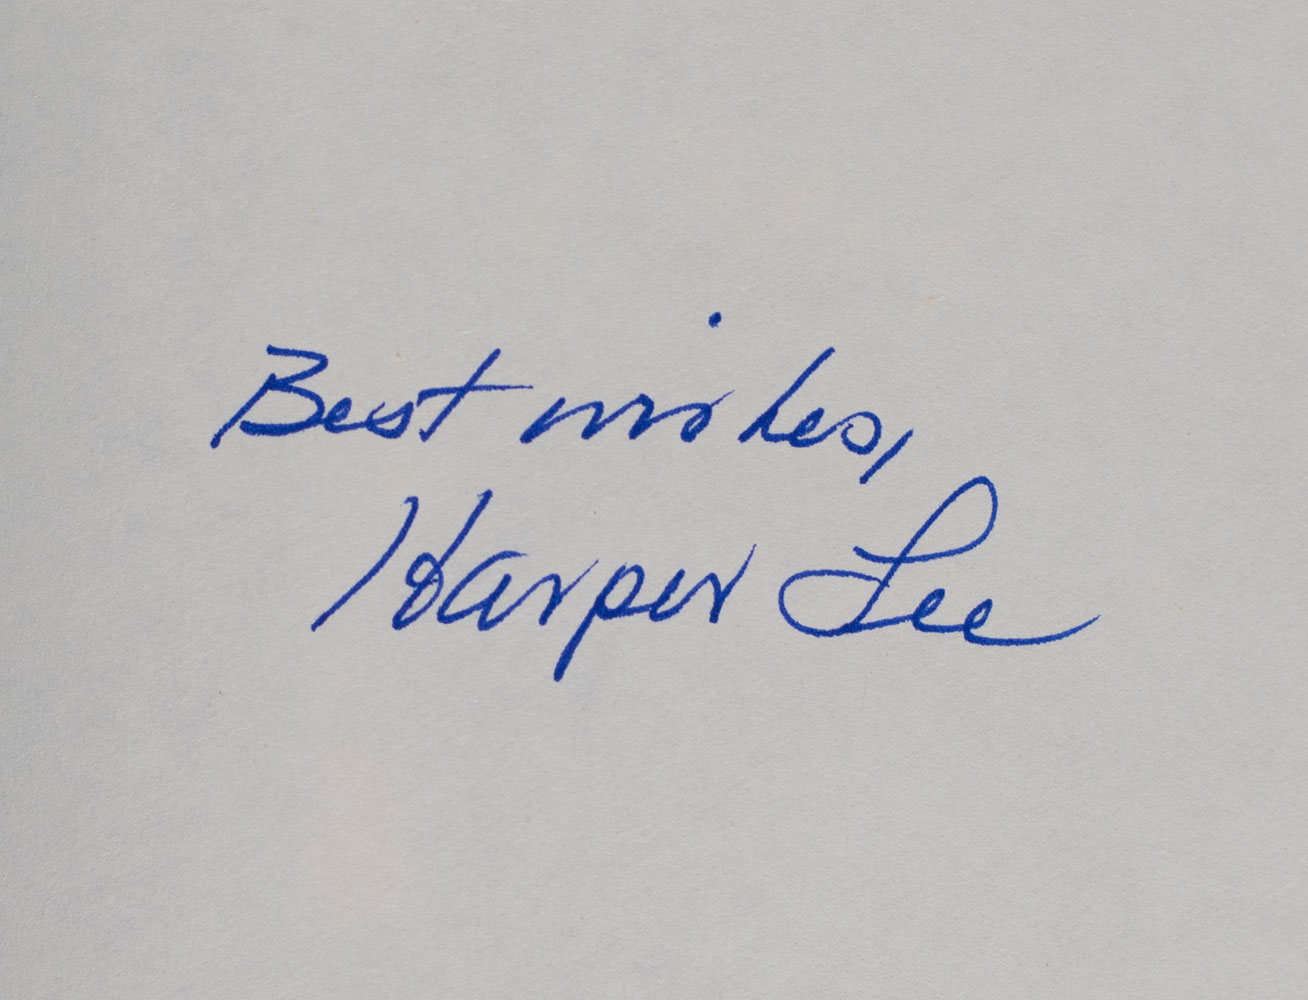 Best wishes,
Harper Lee